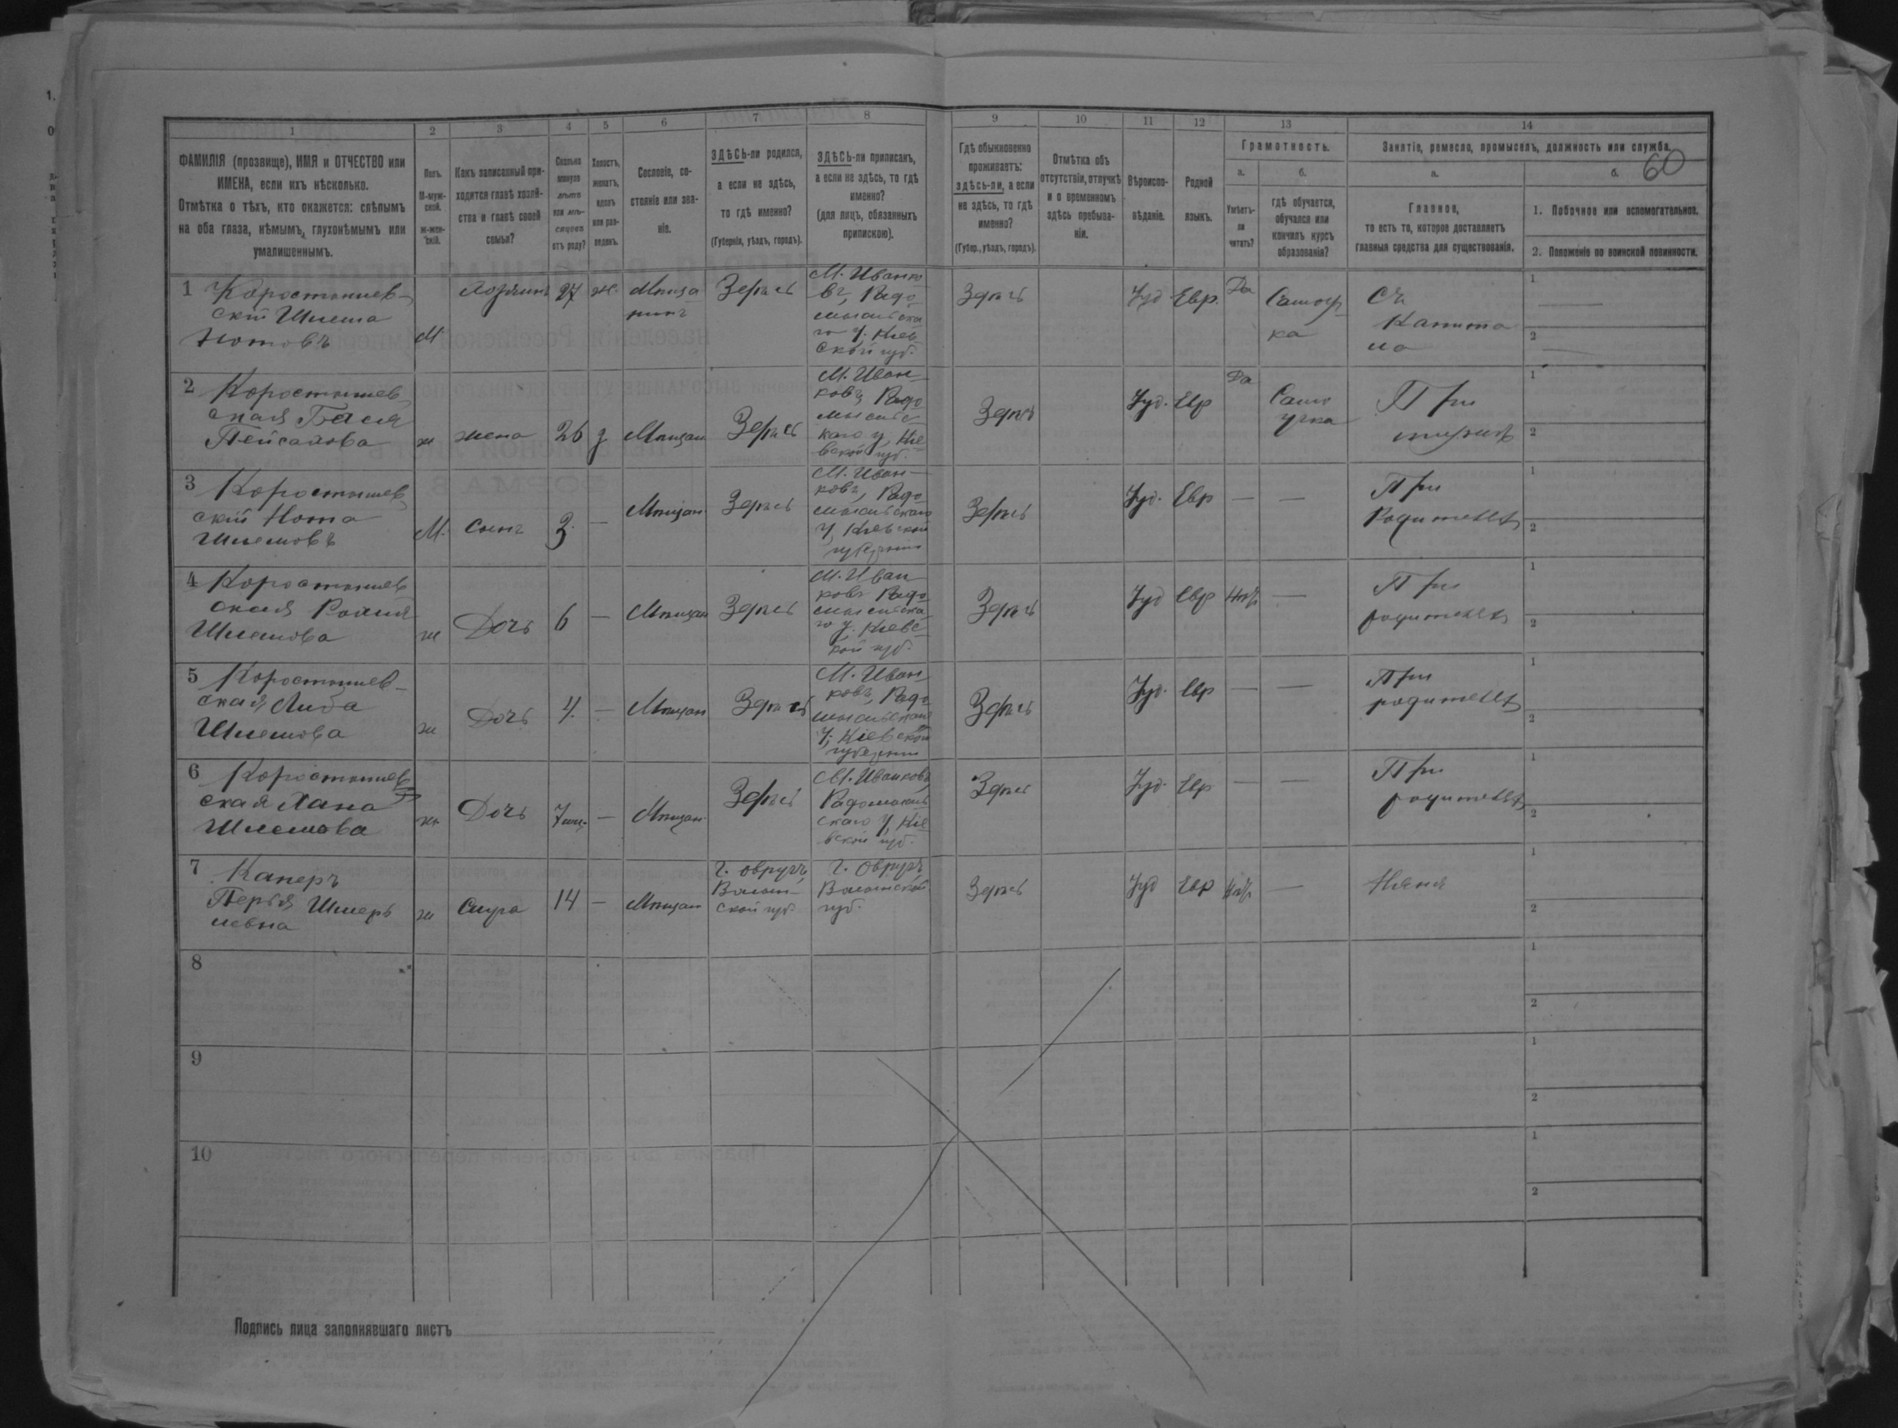 60
1 2 3 4 5 6 7 8 9 10 11 12 13 14
ФАМИЛІЯ (прозвище), ИМЯ и ОТЧЕСТВО или
ИМЕНА, если ихъ нѣсколько.
Отмѣтка о тѣхъ, кто окажется: слѣпымъ
на оба глаза, нѣмымъ, глухонѣмымъ или
умалишеннымъ.
Полъ.
М-муж-
ской.
Ж-жен-
скій.
Какъ записанный при-
ходится главѣ хозяй-
ства и главѣ своей
семьи?
Сколько
минуло
лѣтъ
или мѣ-
сяцевъ
отъ роду?
Холостъ,
женатъ,
вдовъ
или раз-
веденъ.
Сословіе, со-
стояніе или зва-
ніе.
ЗДѢСЬ-ли родился,
а если не здѣсь,
то гдѣ именно?
(Губернія, уѣздъ, городъ).
ЗДѢСЬ-ли приписанъ,
а если не здѣсь, то гдѣ
именно?
(для лицъ, обязанныхъ
припискою).
Гдѣ обыкновенно
проживаетъ:
здѣсь-ли, а если
не здѣсь, то гдѣ
именно?
(Губер., уѣздъ, городъ).
Отмѣтка объ
отсутствіи, отлучкѣ
и о временномъ
здѣсь пребыва-
ніи.
Вѣроиспо-
вѣданіе.
Родной
языкъ.
Грамотность.
а.
Умѣетъ-
ли
читать?
б.
гдѣ обучается,
обучался или
кончилъ курсъ
образованія?
Занятіе, ремесло, промыселъ, должность или служба.
а.
Главное,
то есть то, которое доставляетъ
главныя средства для существованія.
б.
1. Побочное или вспомогательное.
2. Положеніе по воинской повинности.
1 Коростышев-
скій Шлема
Нотовъ
М
27
ж.
Мѣща
нинъ
Здѣсь
М. Иванко
въ, Радо
мысльска
го у. Кіев
ской губ.
Здѣсь
Іуд
Евр.
Да
Самоуч
ка
Съ
Капита
ла
1
2
2 Коростышев
ская Бася
Пейсахова
ж
жена
26
з
Мѣщан
Здѣсь
М. Иван
ковъ Радо
мысльс
каго у, Кіе
вской губ.
Здѣсь
Іуд.
Евр
Да
Само
учка
При
мужѣ
1
2
3 Коростышев
скій Нота
Шлемовъ
М.
Сынъ
3
—
Мѣщан
Здѣсь
М. Иван-
ковъ, Радо
мысльскаго
у, Кіевской
губерніи
Здѣсь
Іуд.
Евр
—
—
При
Родителяхъ
1
2
4 Коростышев
ская
Шлемова
ж
Дочь
6
—
Мѣщан
Здѣсь
М. Иван
ковъ Радо
мысльска
го у. Кіевс
кой губ.
Здѣсь
Іуд
Евр
Нѣтъ
—
При
родителяхъ
1
2
5 Коростышев-
ская Либа
Шлемова
ж
Дочь
4.
—
Мѣщан
Здѣсь
М. Иван
ковъ, Радо
мысльскаго
у, Кіевской
губерніи
Здѣсь
Іуд.
Евр
—
—
При
родителяхъ
1
2
6 Коростышев
ская Хана
Шлемова
ж
Дочь
7 мѣс.
—
Мѣщан.
Здѣсь
М. Иванковъ,
Радомысль
скаго у, Кіе
вской губ.
Здѣсь
Іуд.
Евр
—
—
При
родителяхъ
1
2
7 Каперъ
Перля Шмерь
левна
ж
Слуга
14
—
Мѣщан
Г. Овручъ,
Волын-
ской губ.
Г. Овручъ
Волынской
губ.
Здѣсь
Іуд
Евр
Нѣтъ
—
Няня
1
2
8
1
2
9
1
2
10
1
2
Подпись лица заполнявшаго листъ